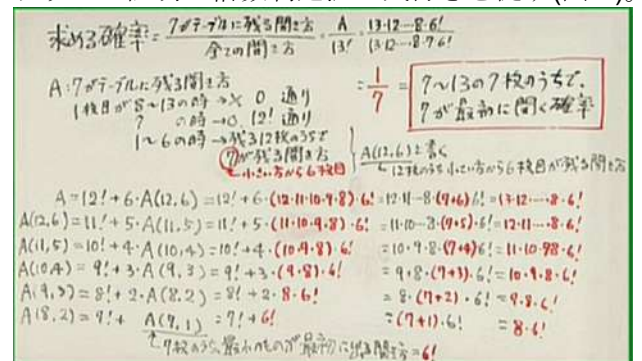 求める確率 = 7がテーブルに残る開き方 / 全ての開き方 = A / 13! = 13·12…8·6! / 13·12…8·7·6!
= 1/7 = 7~13の7枚のうちで、7が最初に開く確率
A:7がテーブルに残る開き方
1枚目が8~13の時→× 0 通り
7 の時→○ 12! 通り
1~6の時→残る12枚のうちで
⑦が残る開き方
小さい方から6枚目
A(12,6)と書く
12枚のうち小さい方から6枚目が残る開き方
A=12!+6·A(12,6)=12!+6·(12·11·10·9·8)·6!=12·11…8·(7+6)·6!=13·12…·8·6!
A(12,6)=11!+5·A(11,5)=11!+5·(11·10·9·8)·6! =11·10…8·(7+5)·6!=12·11…8·6!
A(11,5)=10!+4·A(10,4)=10!+4·(10·9·8)·6! =10·9·8·(7+4)6!=11·10·98·6!
A(10,4)=9!+3·A(9,3)=9!+3·(9·8)·6! =9·8·(7+3)·6!=10·9·8·6!
A(9,3)=8!+2·A(8,2)=8!+2·8·6! =8·(7+2)·6!=9·8·6!
A(8,2)=7!+A(7,1)=7!+6! =(7+1)·6! =8·6!
7枚のうち、最小のものが最初に出る開き方=6!